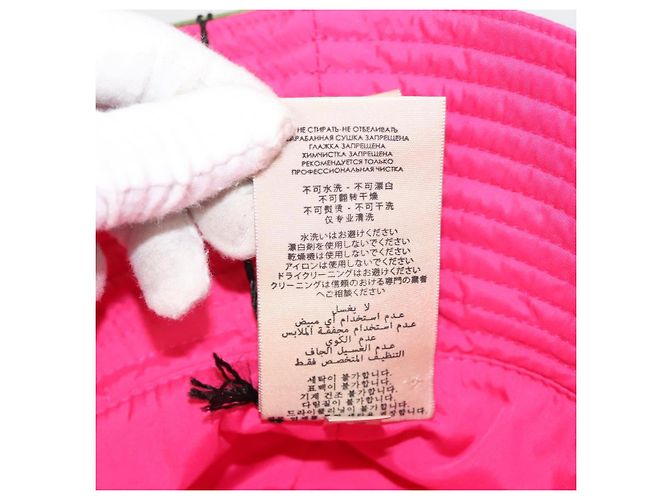 НЕ СТИРАТЬ-НЕ ОТБЕЛИВАТЬ
БАРАБАННАЯ СУШКА ЗАПРЕЩЕНА
ГЛАЖКА ЗАПРЕЩЕНА
ХИМЧИСТКА ЗАПРЕЩЕНА
РЕКОМЕНДУЕТСЯ ТОЛЬКО
ПРОФЕССИОНАЛЬНАЯ ЧИСТКА
不可水洗 - 不可漂白
不可翻转干燥
不可熨烫 - 不可干洗
仅专业清洗
水洗いはお避けください
漂白剤を使用しないでください
乾燥機は使用しないでください
アイロンは使用しないでください
ドライクリーニングはお避けください
クリーニングは信頼のおける専門の業者
へご相談ください
لا يغسل
عدم استخدام أي مبيض
عدم استخدام مجففة الملابس
عدم الكوي
عدم الغسيل الجاف
التنظيف المتخصص فقط
세탁이 불가합니다.
표백이 불가합니다.
기계 건조 불가합니다.
다림질이 불가합니다.
드라이클리닝이 불가합니다.